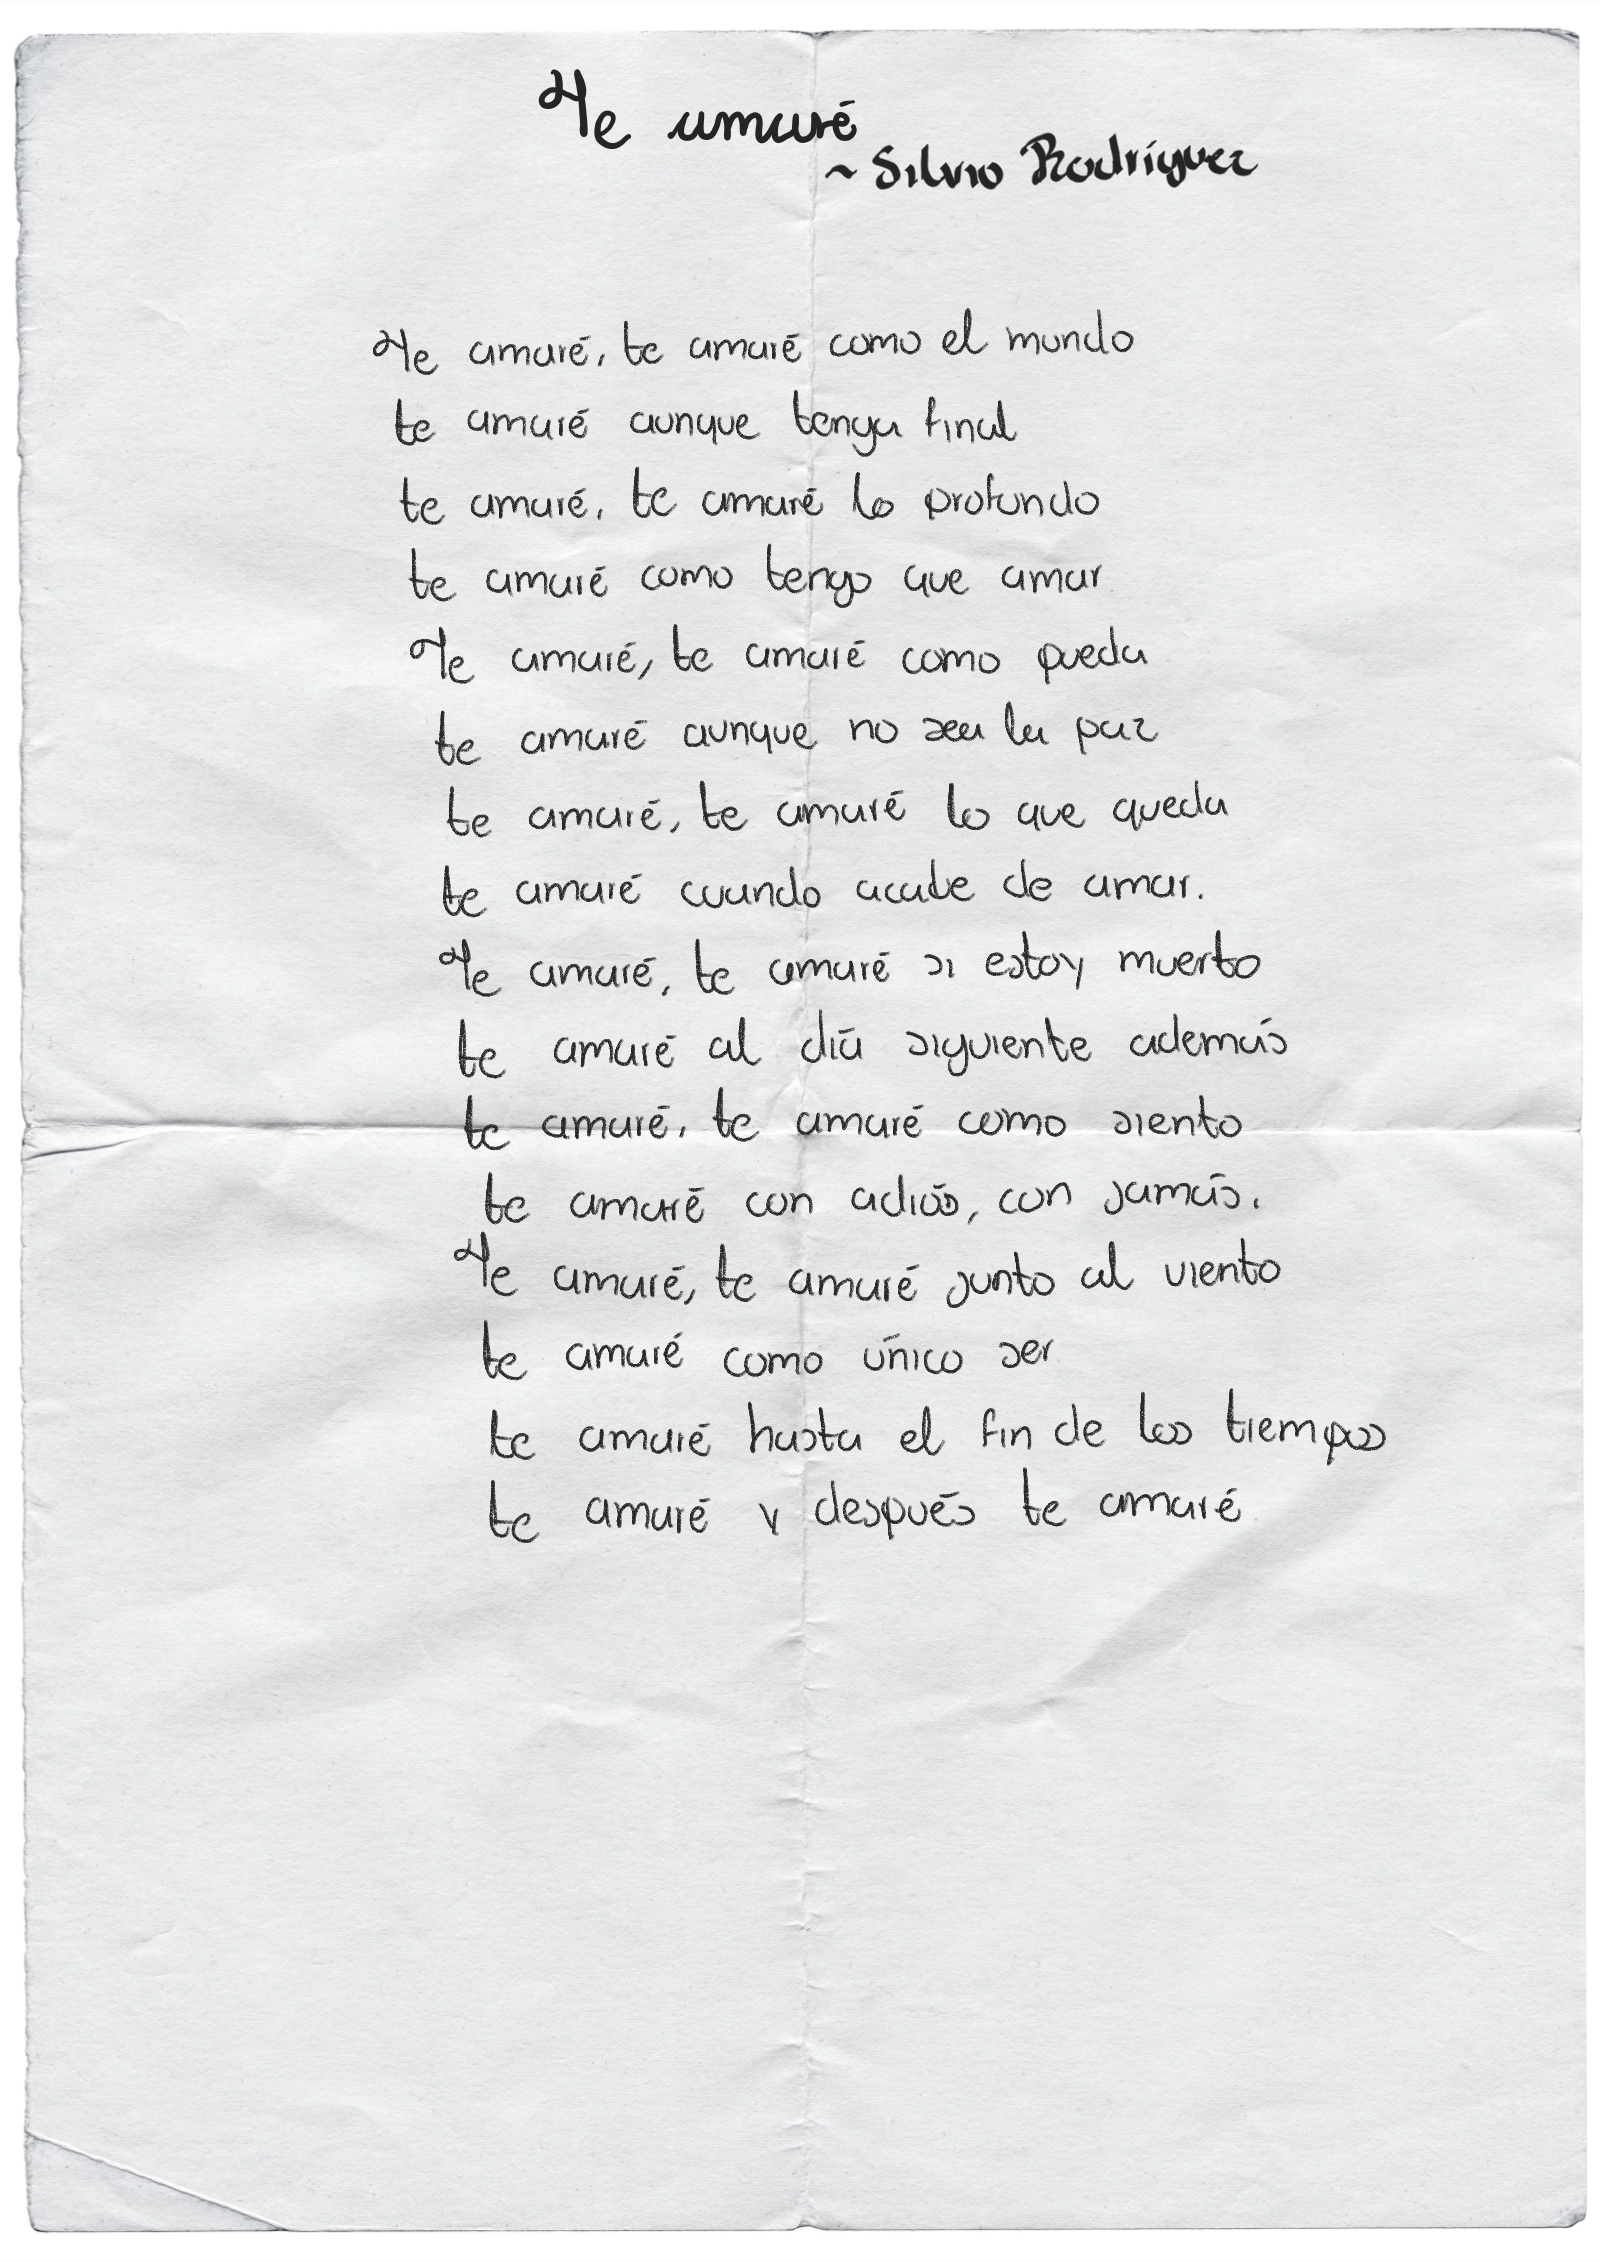 Te amaré
~ Silvio Rodríguez
Te amaré, te amaré como el mundo
te amaré aunque tenga final
te amaré, te amaré lo profundo
te amaré como tengo que amar
Te amaré, te amaré como pueda
te amaré aunque no sea la paz
te amaré, te amaré lo que queda
te amaré cuando acabe de amar.
Te amaré, te amaré si estoy muerto
te amaré al día siguiente además
te amaré, te amaré como siento
te amaré con adiós, con jamás.
Te amaré, te amaré junto al viento
te amaré como único ser
te amaré hasta el fin de los tiempos
te amaré y después te amaré